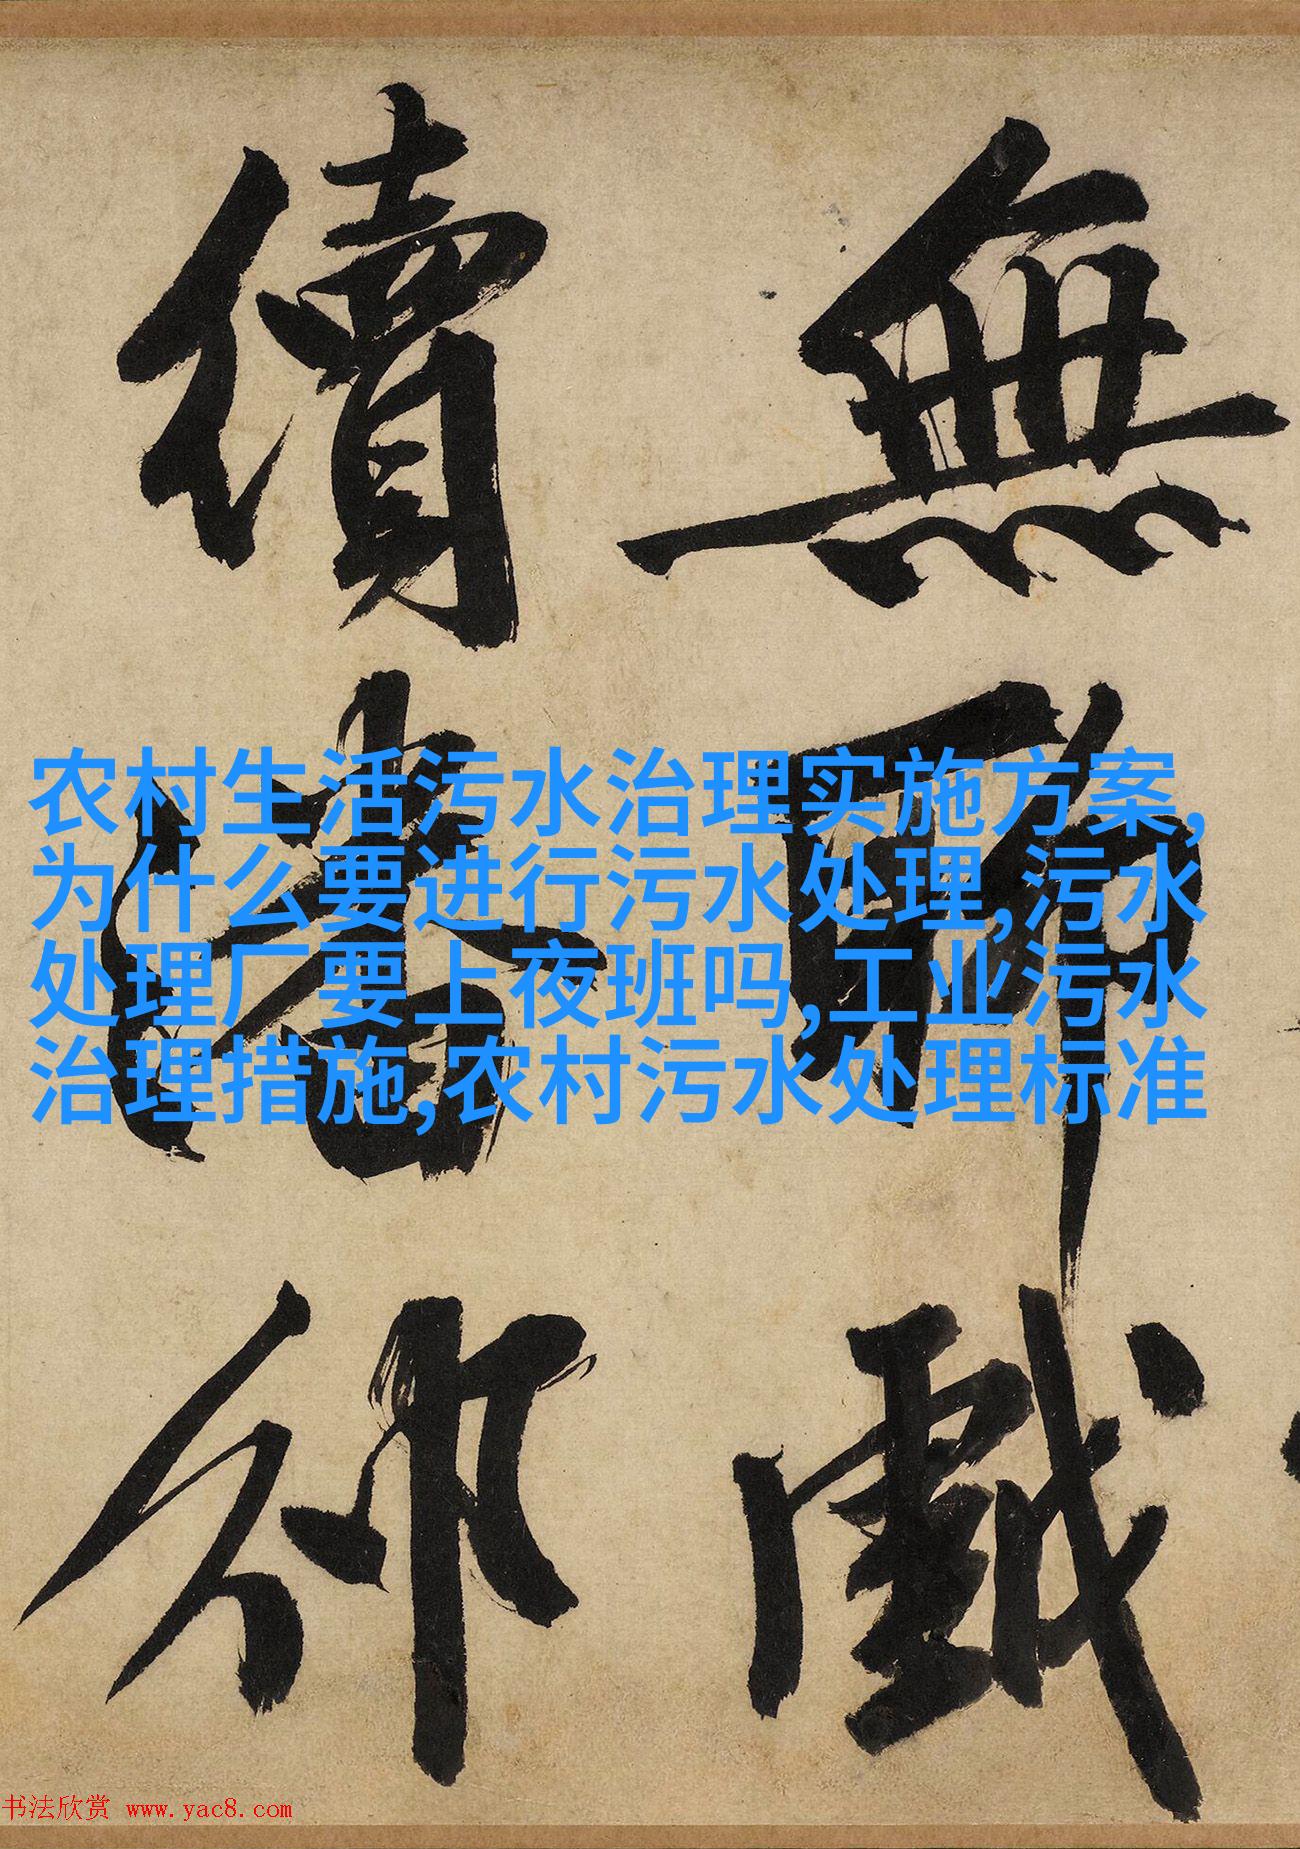 無聊戲
續潘邠
农村生活污水治理实施方案,
为什么要进行污水处理,污水
处理厂要上夜班吗,工业污水
治理措施,农村污水处理标准
书法欣赏 www.yac8.com